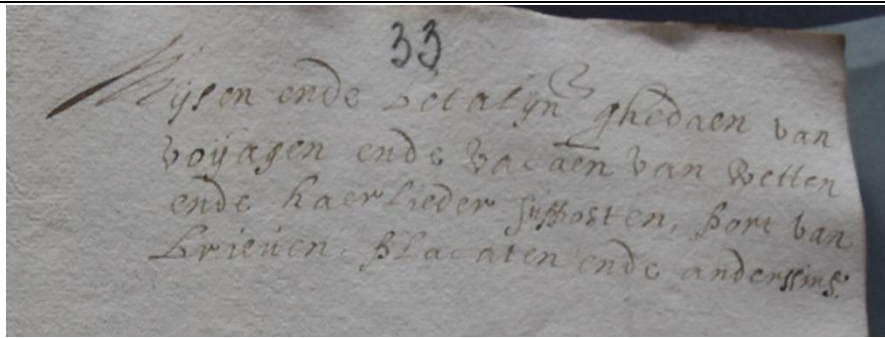 33
Mijsen ende betalijn ghedaen van
voijagen ende vacaen van wetten
ende haerlieder supposten, port van
brieven, placaten ende anderssins.